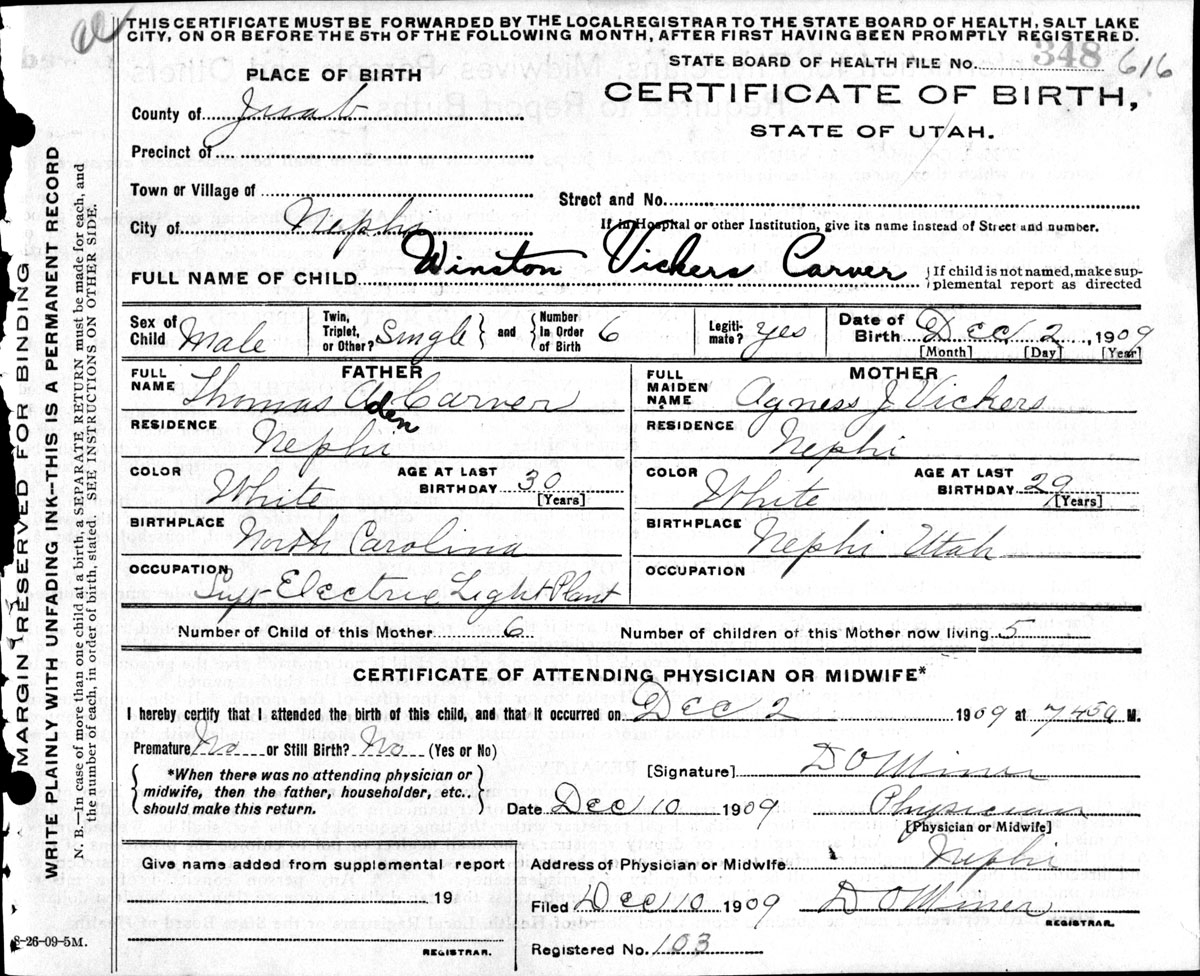 THIS CERTIFICATE MUST BE FORWARDED BY THE LOCAL REGISTRAR TO THE STATE BOARD OF HEALTH, SALT LAKE
CITY, ON OR BEFORE THE 5TH OF THE FOLLOWING MONTH, AFTER FIRST HAVING BEEN PROMPTLY REGISTERED.
STATE BOARD OF HEALTH FILE No. 348 616
PLACE OF BIRTH
CERTIFICATE OF BIRTH,
STATE OF UTAH.
County of Juab
Precinct of
Town or Village of
Street and No.
City of Nephi
If in Hospital or other Institution, give its name instead of Street and number.
FULL NAME OF CHILD Winston Vickers Carver
If child is not named, make sup-
plemental report as directed
Sex of Child Male
Twin, Triplet, or Other? Single
and Number in Order of Birth 6
Legiti-mate? yes
Date of Birth Dec 2, 1909
[Month] [Day] [Year]
FATHER
FULL NAME Thomas Aden Carver
RESIDENCE Nephi
COLOR White
AGE AT LAST BIRTHDAY 30 [Years]
BIRTHPLACE North Carolina
OCCUPATION Supt Electric Light Plant
MOTHER
FULL MAIDEN NAME Agness J Vickers
RESIDENCE Nephi
COLOR White
AGE AT LAST BIRTHDAY 29 [Years]
BIRTHPLACE Nephi Utah
OCCUPATION
Number of Child of this Mother 6
Number of children of this Mother now living 5
CERTIFICATE OF ATTENDING PHYSICIAN OR MIDWIFE*
I hereby certify that I attended the birth of this child, and that it occurred on Dec 2 1909 at M.
Premature No or Still Birth? No (Yes or No)
*When there was no attending physician or
midwife, then the father, householder, etc.,
should make this return.
[Signature] D O Miner
Date Dec 10 1909 Physician
[Physician or Midwife]
Give name added from supplemental report
19
REGISTRAR.
Address of Physician or Midwife Nephi
Filed Dec 10 1909 D O Miner
REGISTRAR.
Registered No. 103
8-26-09-5M.
MARGIN RESERVED FOR BINDING
WRITE PLAINLY WITH UNFADING INK--THIS IS A PERMANENT RECORD
N. B.--In case of more than one child at a birth, a SEPARATE RETURN must be made for each, and
the number of each, in order of birth, stated. SEE INSTRUCTIONS ON OTHER SIDE.